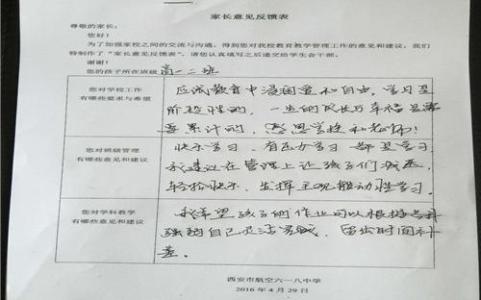 家长意见反馈表
尊敬的家长：
您好！
为了加强家校之间的交流与沟通，得到您对我校教育教学管理工作的意见和建议，我们
特制作了“家长意见反馈表”，请您认真填写之后递交给学生会干部。
谢谢！
您的孩子所在班级 高一二班
您对学校工作
有哪些要求与希望
应试教育中渗透量和自由，学习是
阶段性的，一生的成长乃幸福是需
要累计的，感恩学校和老师！
您对班级管理
有哪些意见和建议
快乐学习、有压力学习 都是学习
我建议在管理上让孩子们减压，
轻松快乐，发挥主观能动性学习。
您对学科教学
有哪些意见和建议
我希望孩子的作业可以根据
强弱自己灵活完成，留出时间补
差。
西安市航空六一八中学
2016 年 4 月 29 日